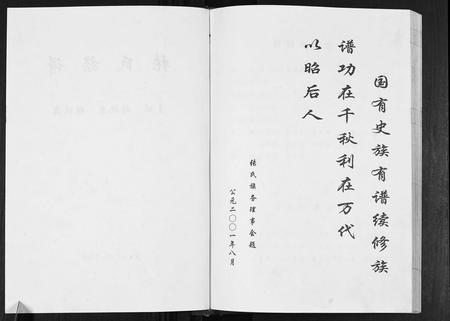 国有史族有谱续修族
谱功在千秋利在万代
以昭后人
张氏族务理事会题
公元二〇〇一年八月